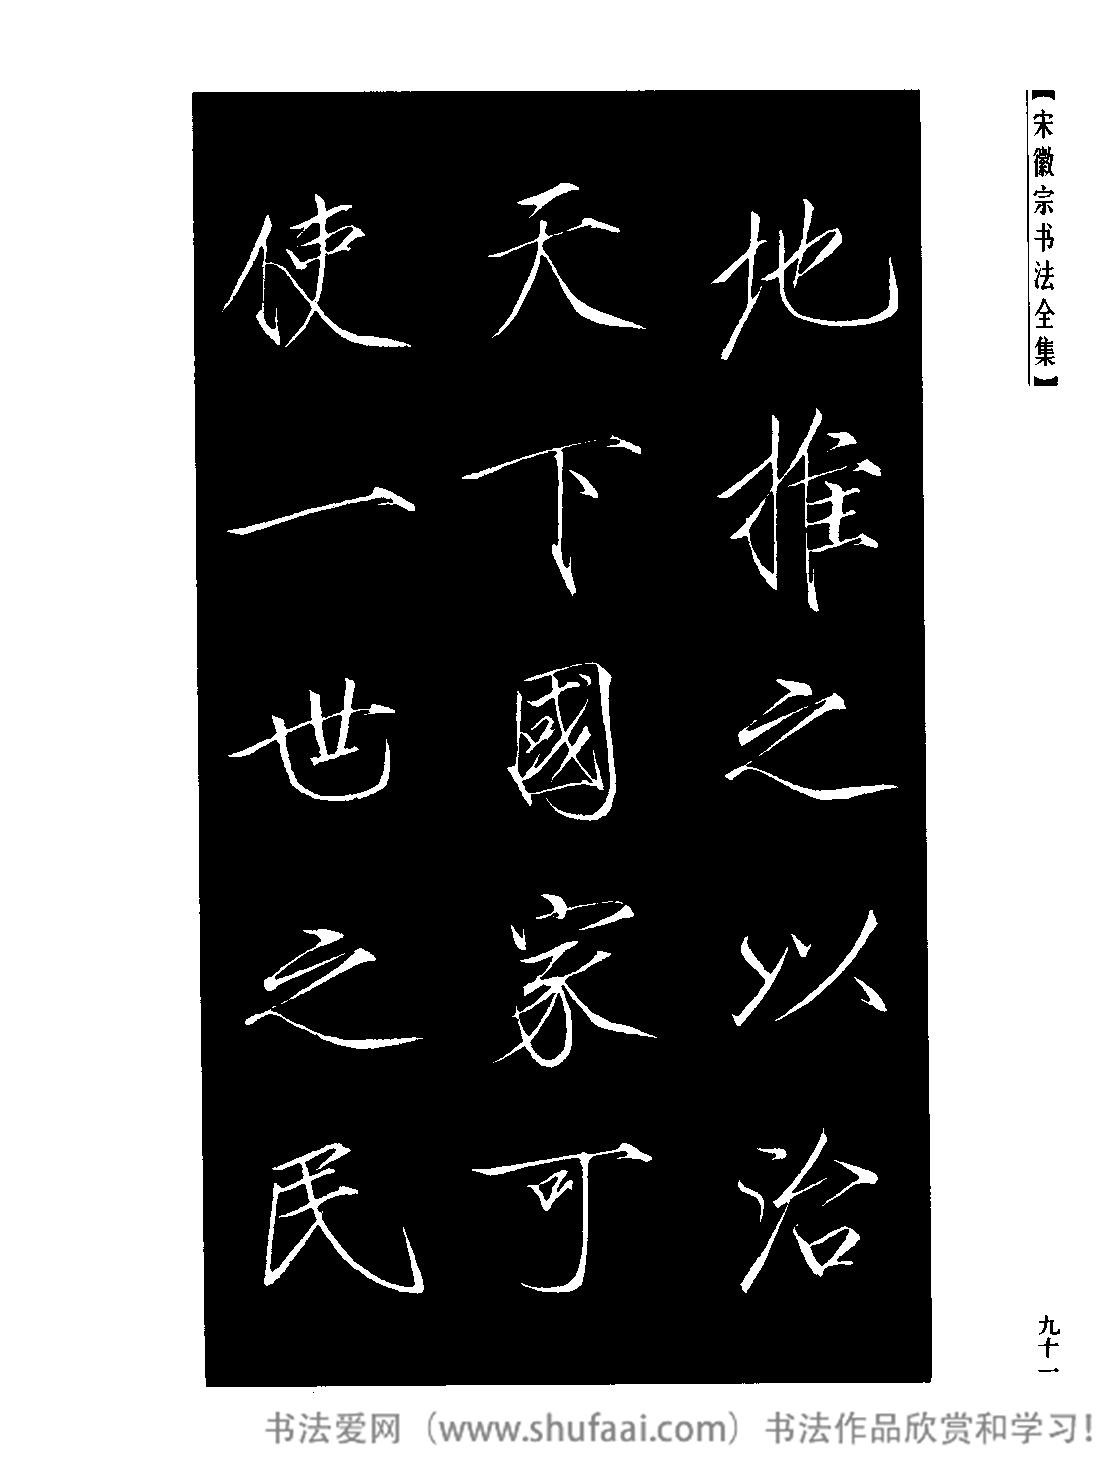 【宋徽宗书法全集】
地推之以治
天下國家可
使一世之民
九十一
书法爱网（www.shufaai.com）书法作品欣赏和学习！